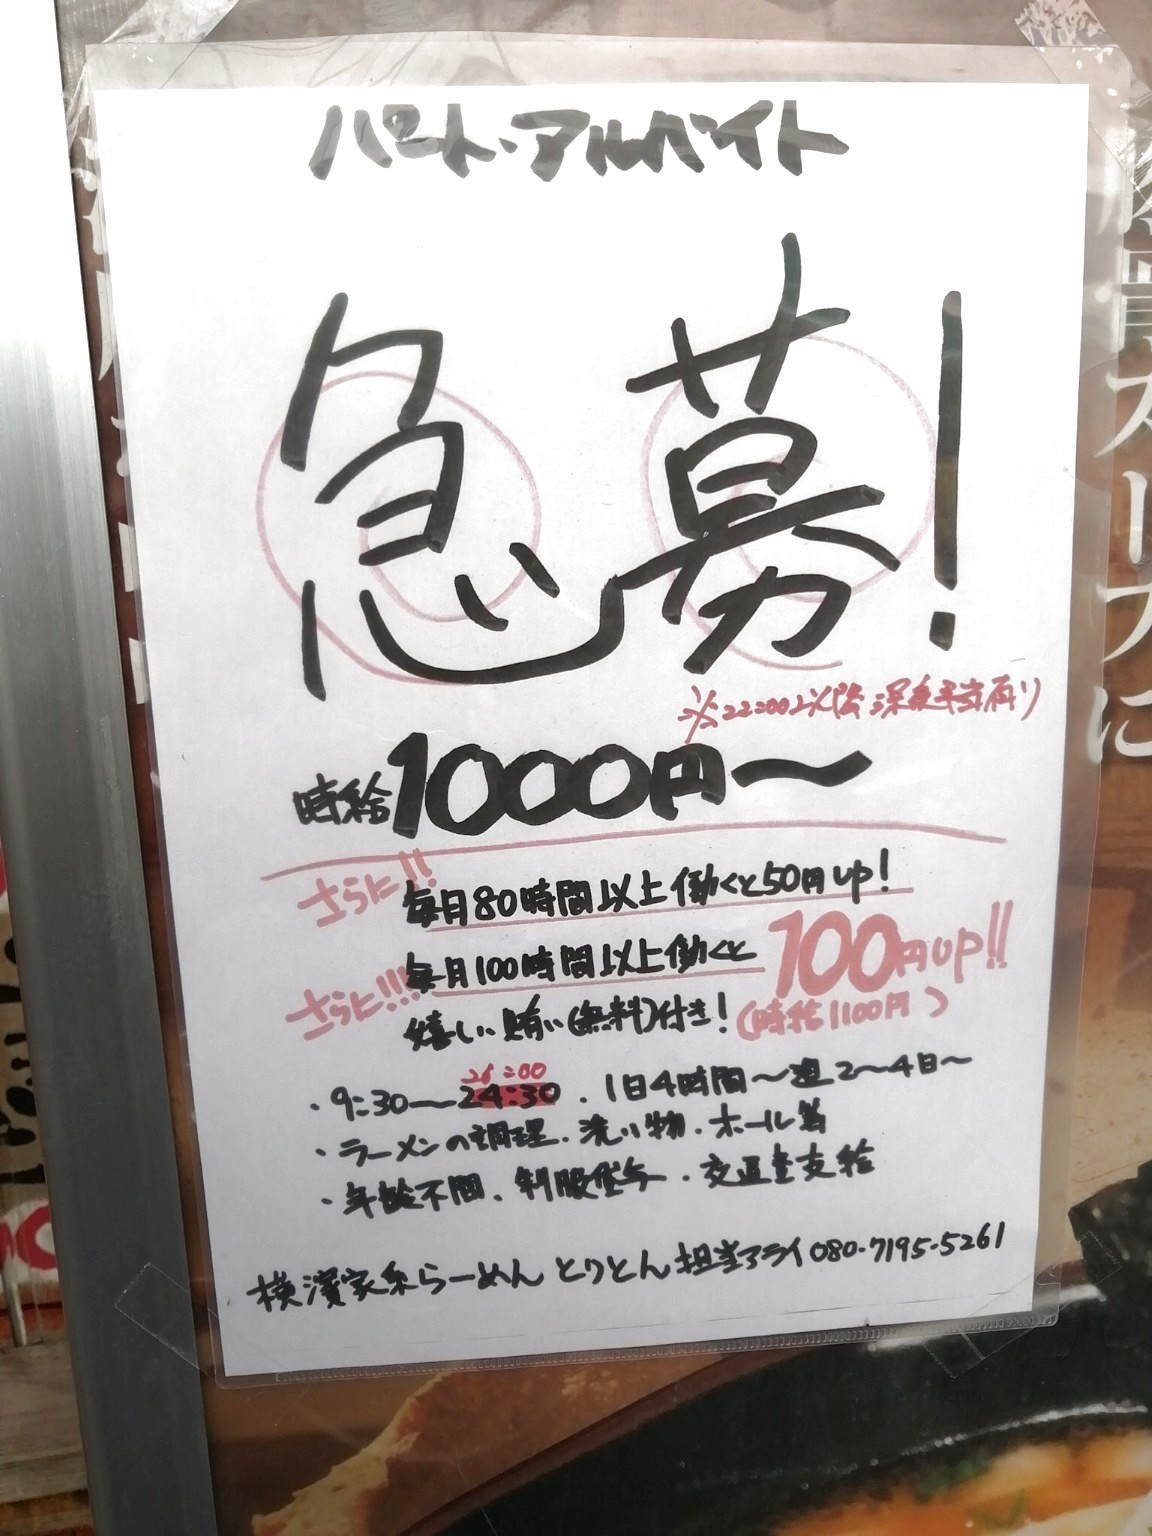 パート・アルバイト
急募!
※22:00以降深夜手当有り
時給1000円〜
さらに!! 毎月80時間以上働くと50円up!
さらに!!! 毎月100時間以上働くと100円up!!
嬉しい賄い(無料)付き! (時給1100円)
26:00
・9:30〜24:30 . 1日4時間〜週2〜4日〜
・ラーメンの調理、洗い物、ホール等
・年齢不問、制服貸与、交通費支給
横濱家系らーめん とりとん 担当アライ 080-7195-5261
スープに